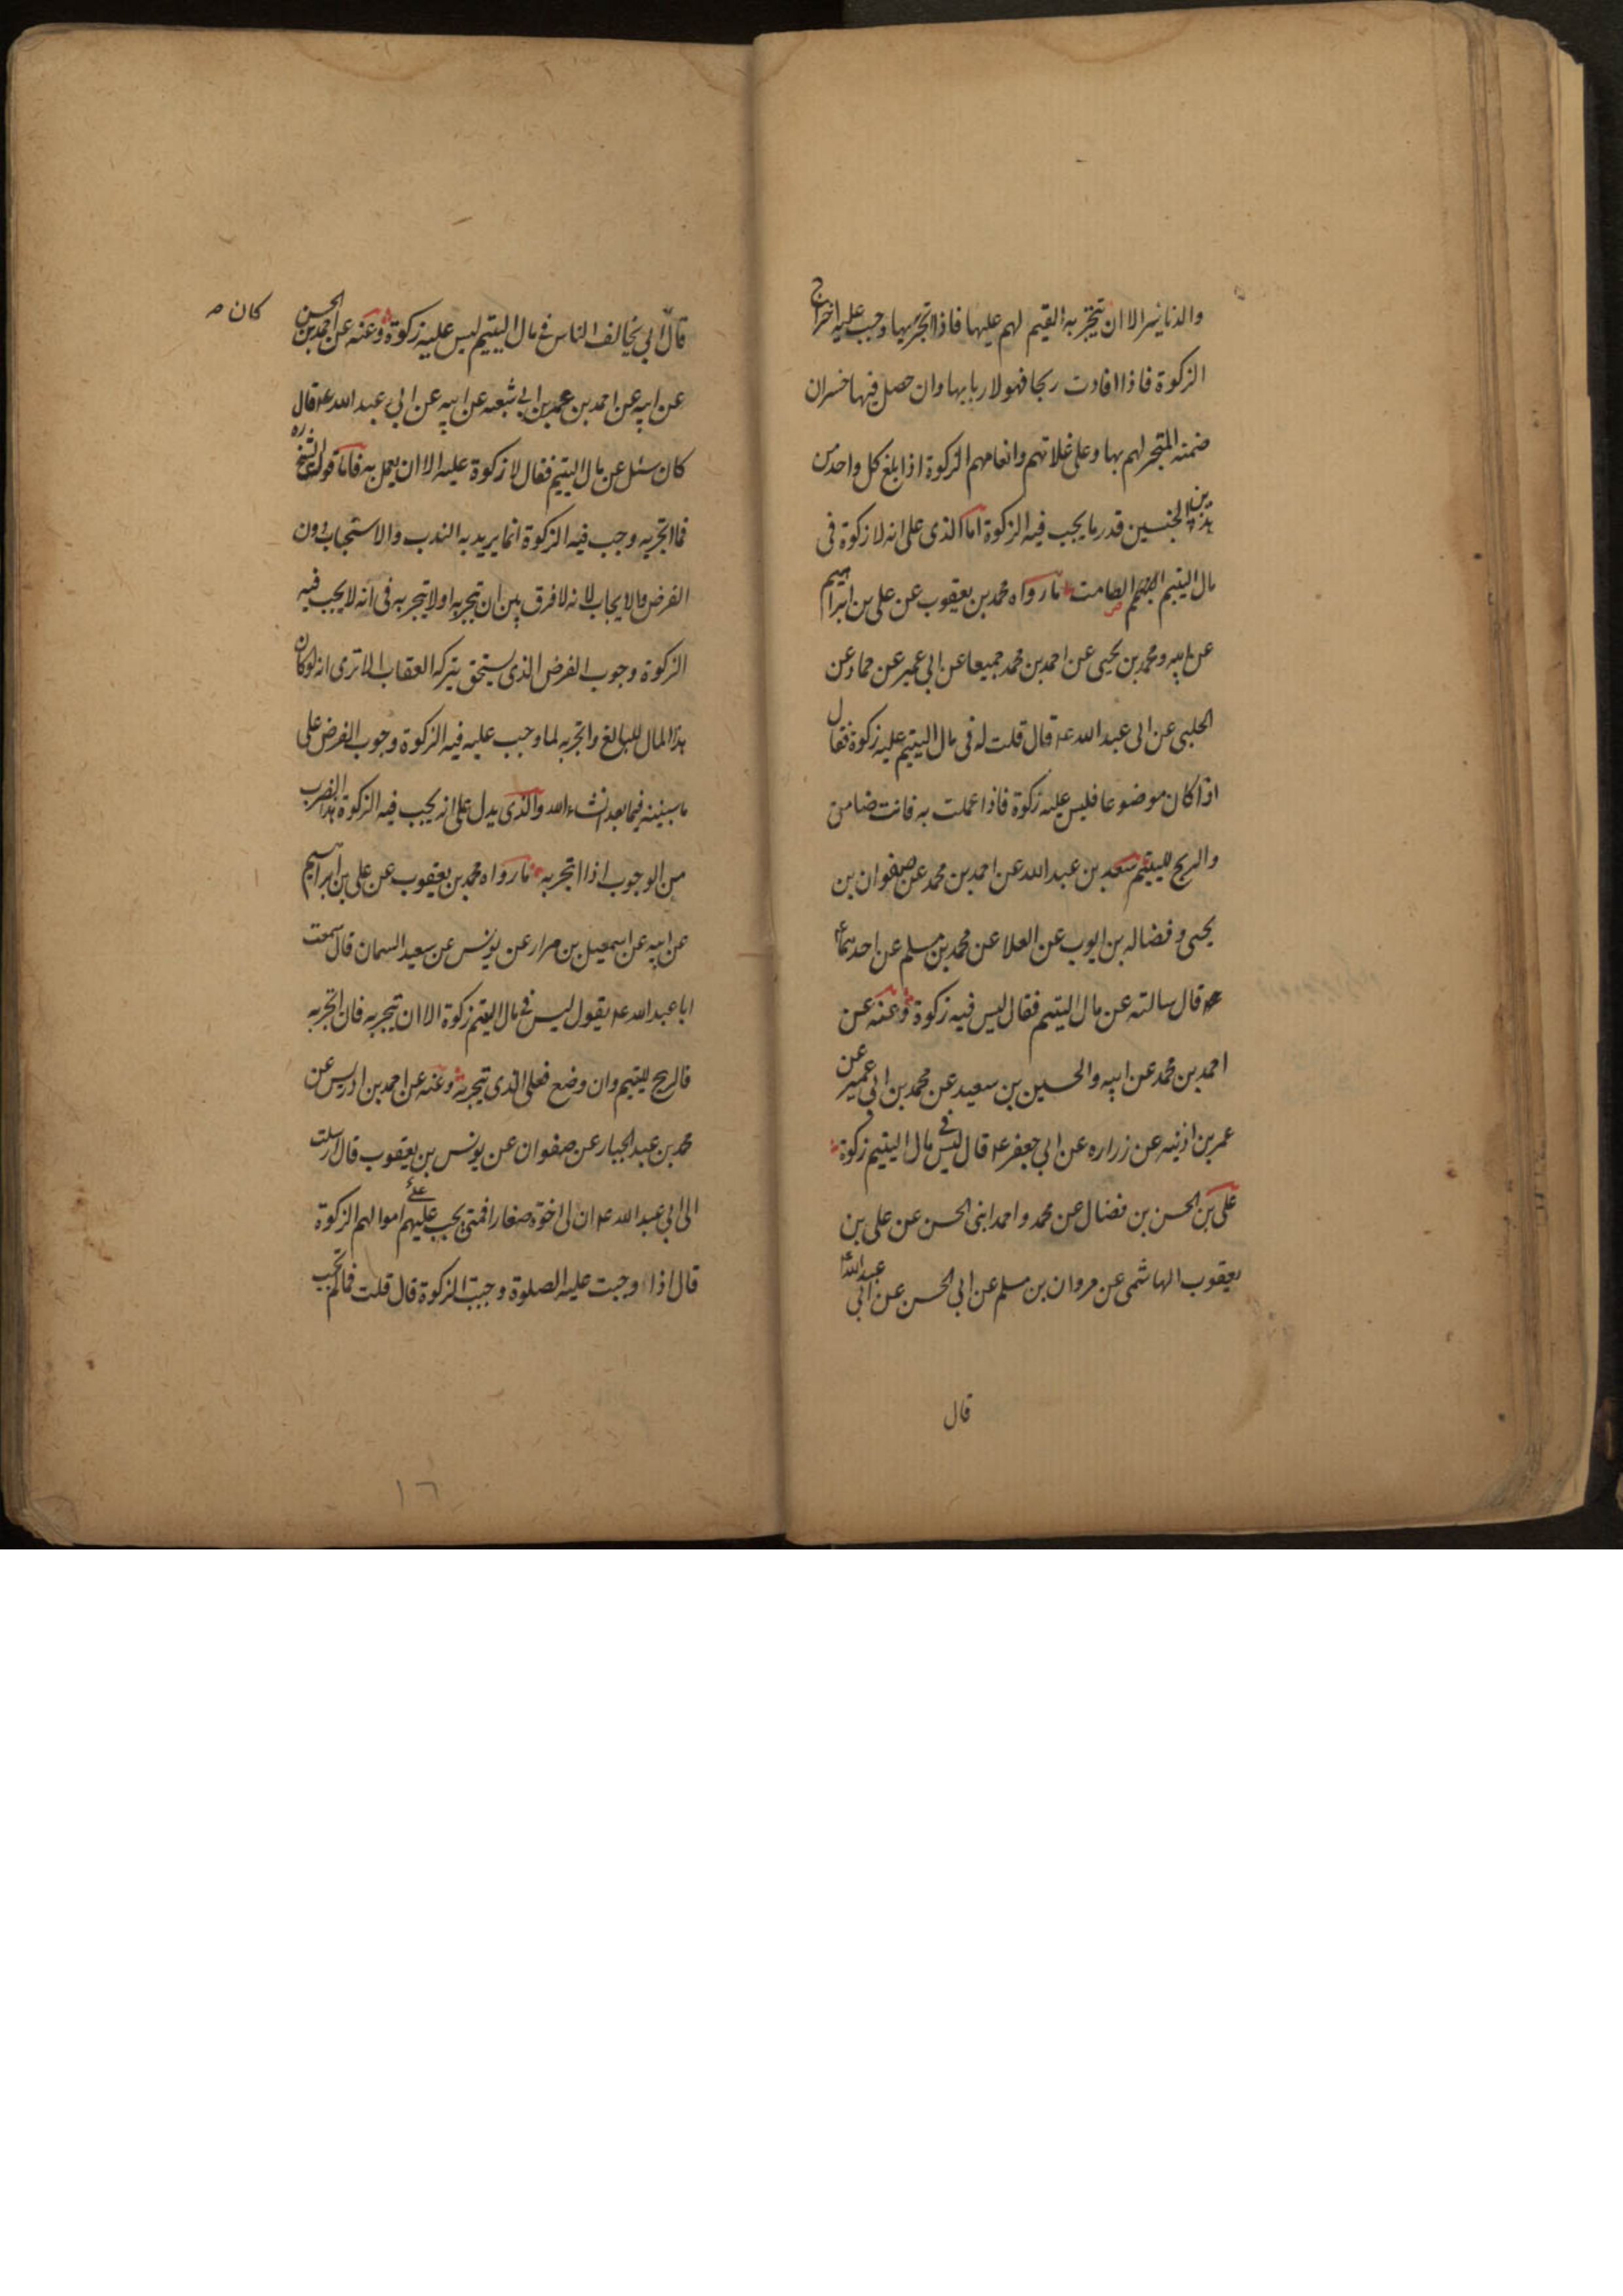 والدنانير الا ان يتجر به القيم لهم عليها فاذا اتجر بها وجب عليه اخراج
الزكوة فاذا افادت ربحا فهو لاربابها وان حصل فيها خسران
ضمنه المتجر لهم بها وعلى غلاتهم وانعامهم الزكوة اذا بلغ كل واحد من
هذين الجنسين قدر ما يجب فيه الزكوة اما الذى على انه لا زكوة فى
مال اليتيم الصامت ما رواه محمد بن يعقوب عن على بن ابراهيم
عن ابيه ومحمد بن يحيى عن احمد بن محمد جميعا عن ابى عمير عن حماد عن
الحلبى عن ابى عبد الله عه قال قلت له فى مال اليتيم عليه زكوة فقال
اذا كان موضوعا فليس عليه زكوة فاذا عملت به فانت ضامن
والربح لليتيم سعد بن عبد الله عن احمد بن محمد عن صفوان بن
يحيى وفضاله بن ايوب عن العلا عن محمد بن مسلم عن احدهما
عه قال سالته عن مال اليتيم فقال ليس فيه زكوة وعنه عن
احمد بن محمد عن ابيه والحسين بن سعيد عن محمد بن ابى عمير عن
عمر بن اذنيه عن زراره عن ابى جعفر عه قال ليس فى مال اليتيم زكوة
على بن الحسن بن فضال عن محمد واحمد ابنى الحسن عن على بن
يعقوب الهاشمى عن مروان بن مسلم عن ابى الحسن عن ابى عبد الله
قال
قال ابى يخالف الناس فى مال اليتيم ليس عليه زكوة وعنه عن احمد بن الحسن
كان
عن ابيه عن احمد بن عمر بن ابى شعبه عن ابيه عن ابى عبد الله عه قال
كان سئل عن مال اليتيم فقال لا زكوة عليه الا ان يعمل به فاما قول الشيخ ره
فما اتجر به وجب فيه الزكوة انما يريد به الندب والاستحباب دون
الفرض والايجاب لانه لا فرق بين ان يتجر به او لا يتجر به فى انه لا يجب فيه
الزكوة وجوب الفرض الذى يستحق بتركه العقاب الا ترى انه لو كان
هذا المال للبالغ واتجر به لما وجب عليه فيه الزكوة وجوب الفرض على
ما سنبينه فيما بعد انشاء الله والذى يدل على انه يجب فيه الزكوة هذا الضرب
من الوجوب اذا اتجر به ما رواه محمد بن يعقوب عن على بن ابراهيم
عن ابيه عن اسمعيل بن مرار عن يونس عن سعيد السمان قال سمعت
ابا عبد الله عه يقول ليس فى مال اليتيم زكوة الا ان يتجر به فان اتجر به
فالربح لليتيم وان وضع فعلى الذى يتجر به وعنه عن احمد بن ادريس عن
محمد بن عبد الجبار عن صفوان عن يونس بن يعقوب قال ارسلت
الى ابى عبد الله عه ان لى اخوة صغارا فمتى يجب عليهم على اموالهم الزكوة
قال اذا وجبت عليه الصلوة وجبت الزكوة قال قلت فما لم تجب
١٦